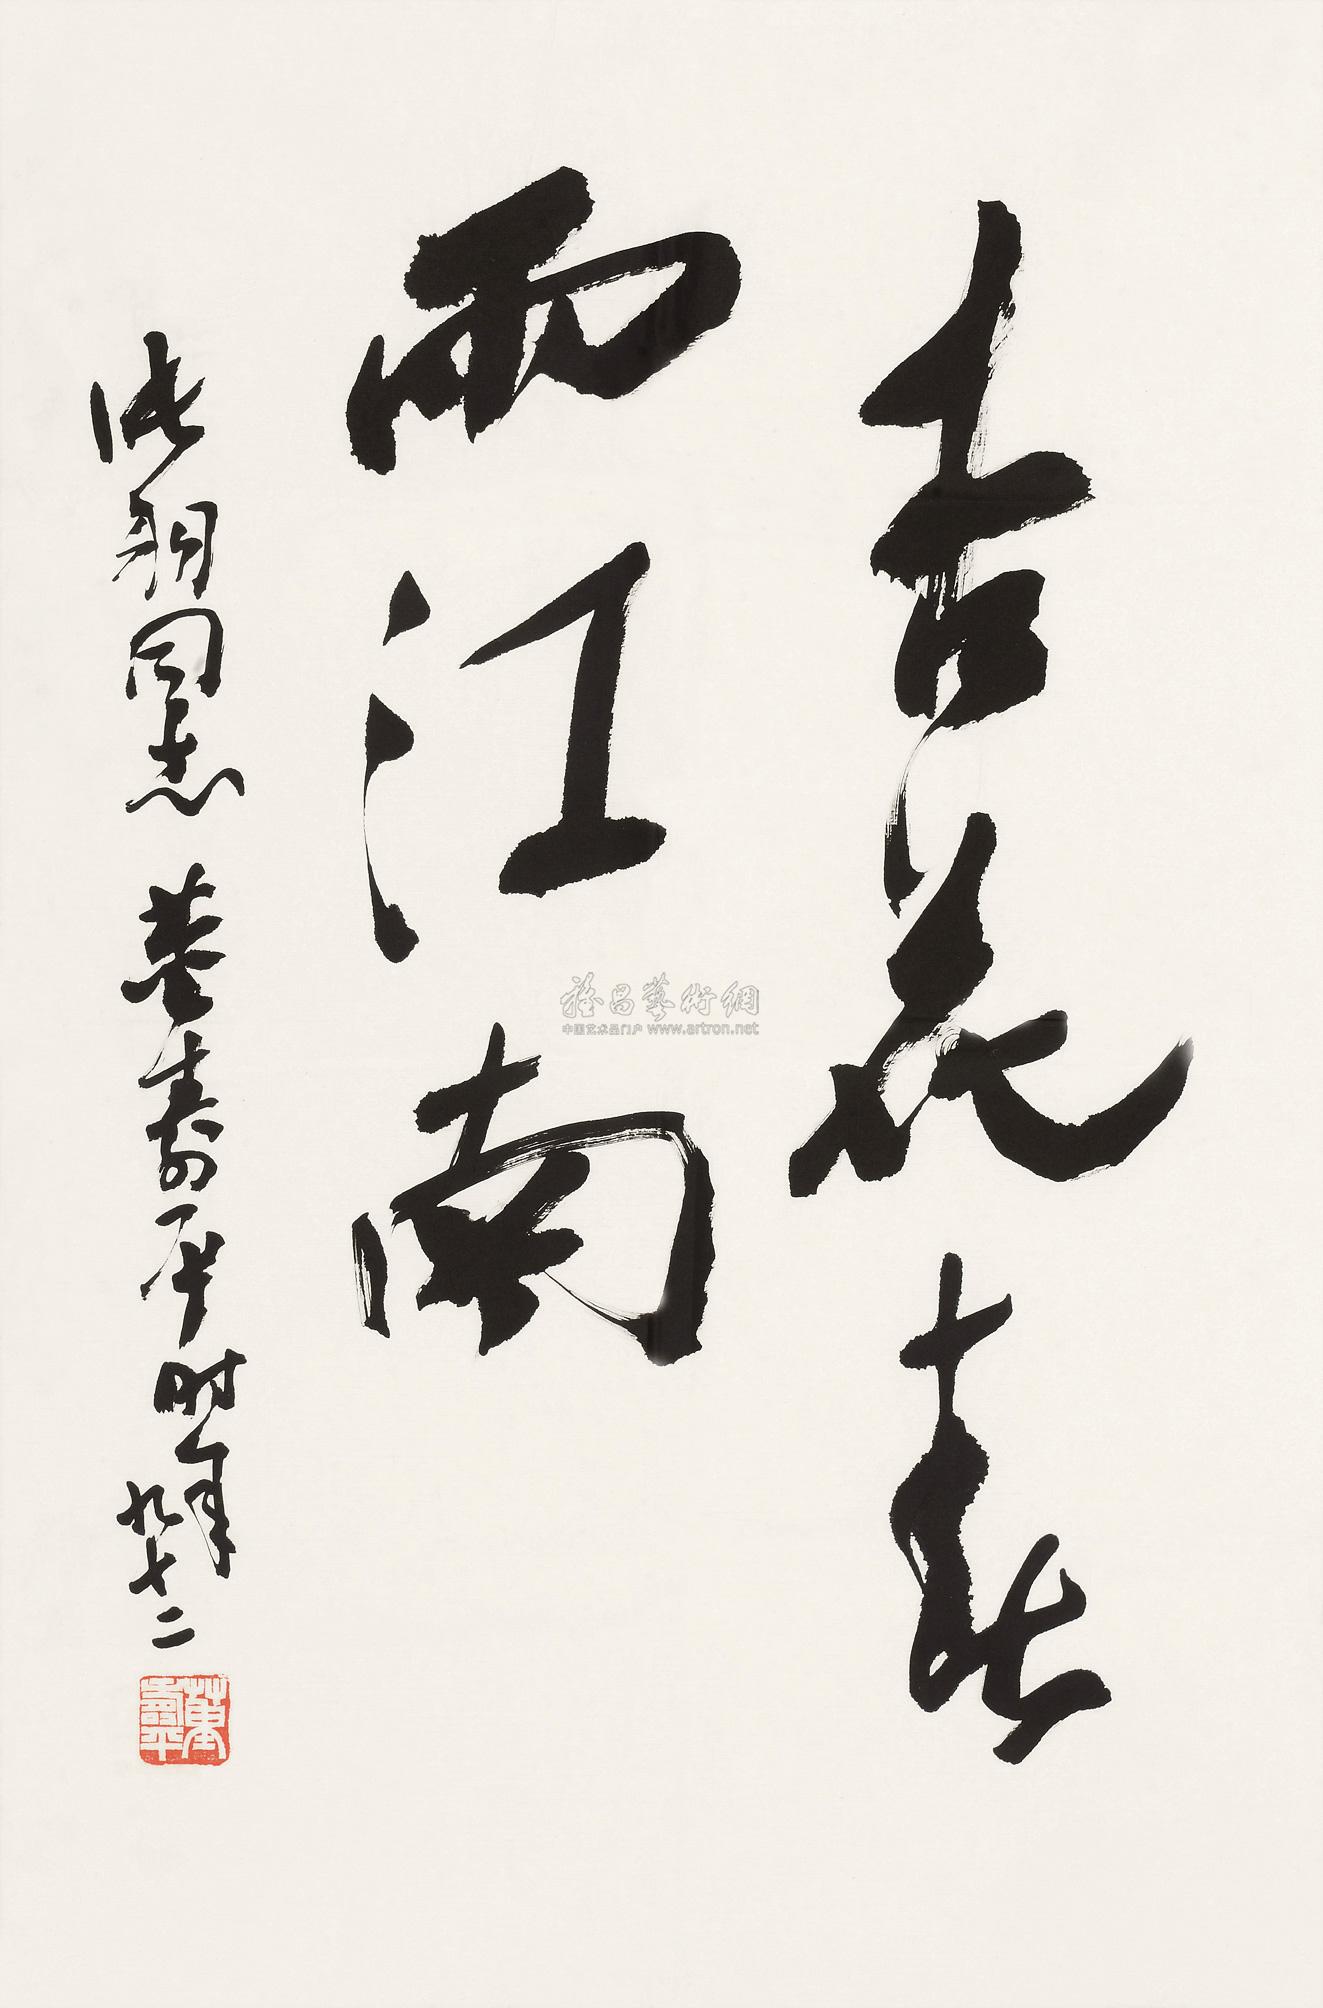 杏花春
雨江南
张羽同志 董寿平时年九十二
董壽平
雅昌藝術網
中国艺术品门户 www.artron.net